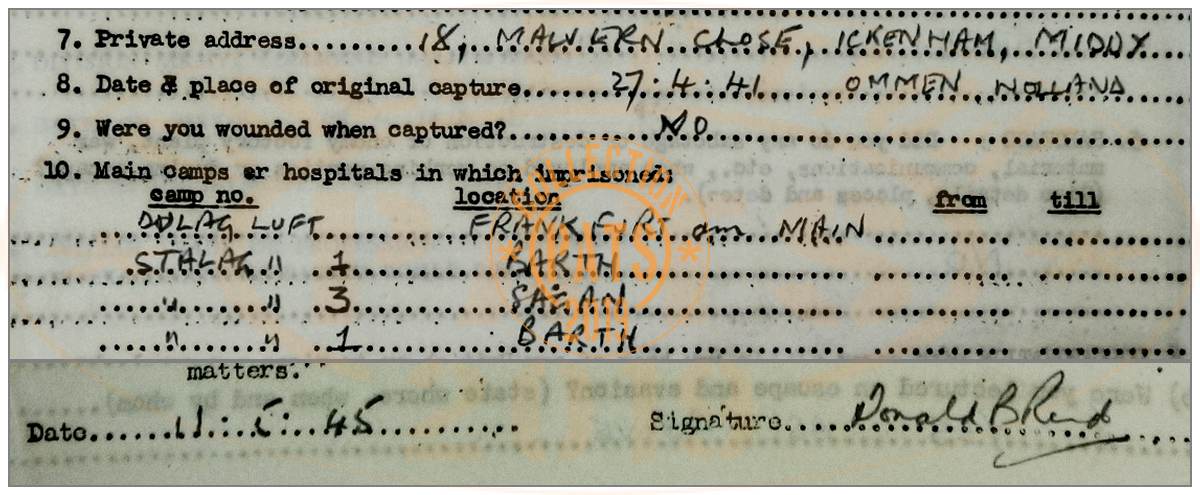 7. Private address..........18, MALVERN CLOSE, ICKENHAM, MIDDX
8. Date & place of original capture........27.4.41 OMMEN HOLLAND
9. Were you wounded when captured?..........NO
10. Main camps or hospitals in which imprisoned:
camp no. location from till
DULAG LUFT FRANKFURT am MAIN
STALAG " 1 BARTH
" " 3 SAGAN
" " 1 BARTH
matters.
Date......11.5.45.......... Signature.....Donald B
COLLECTION